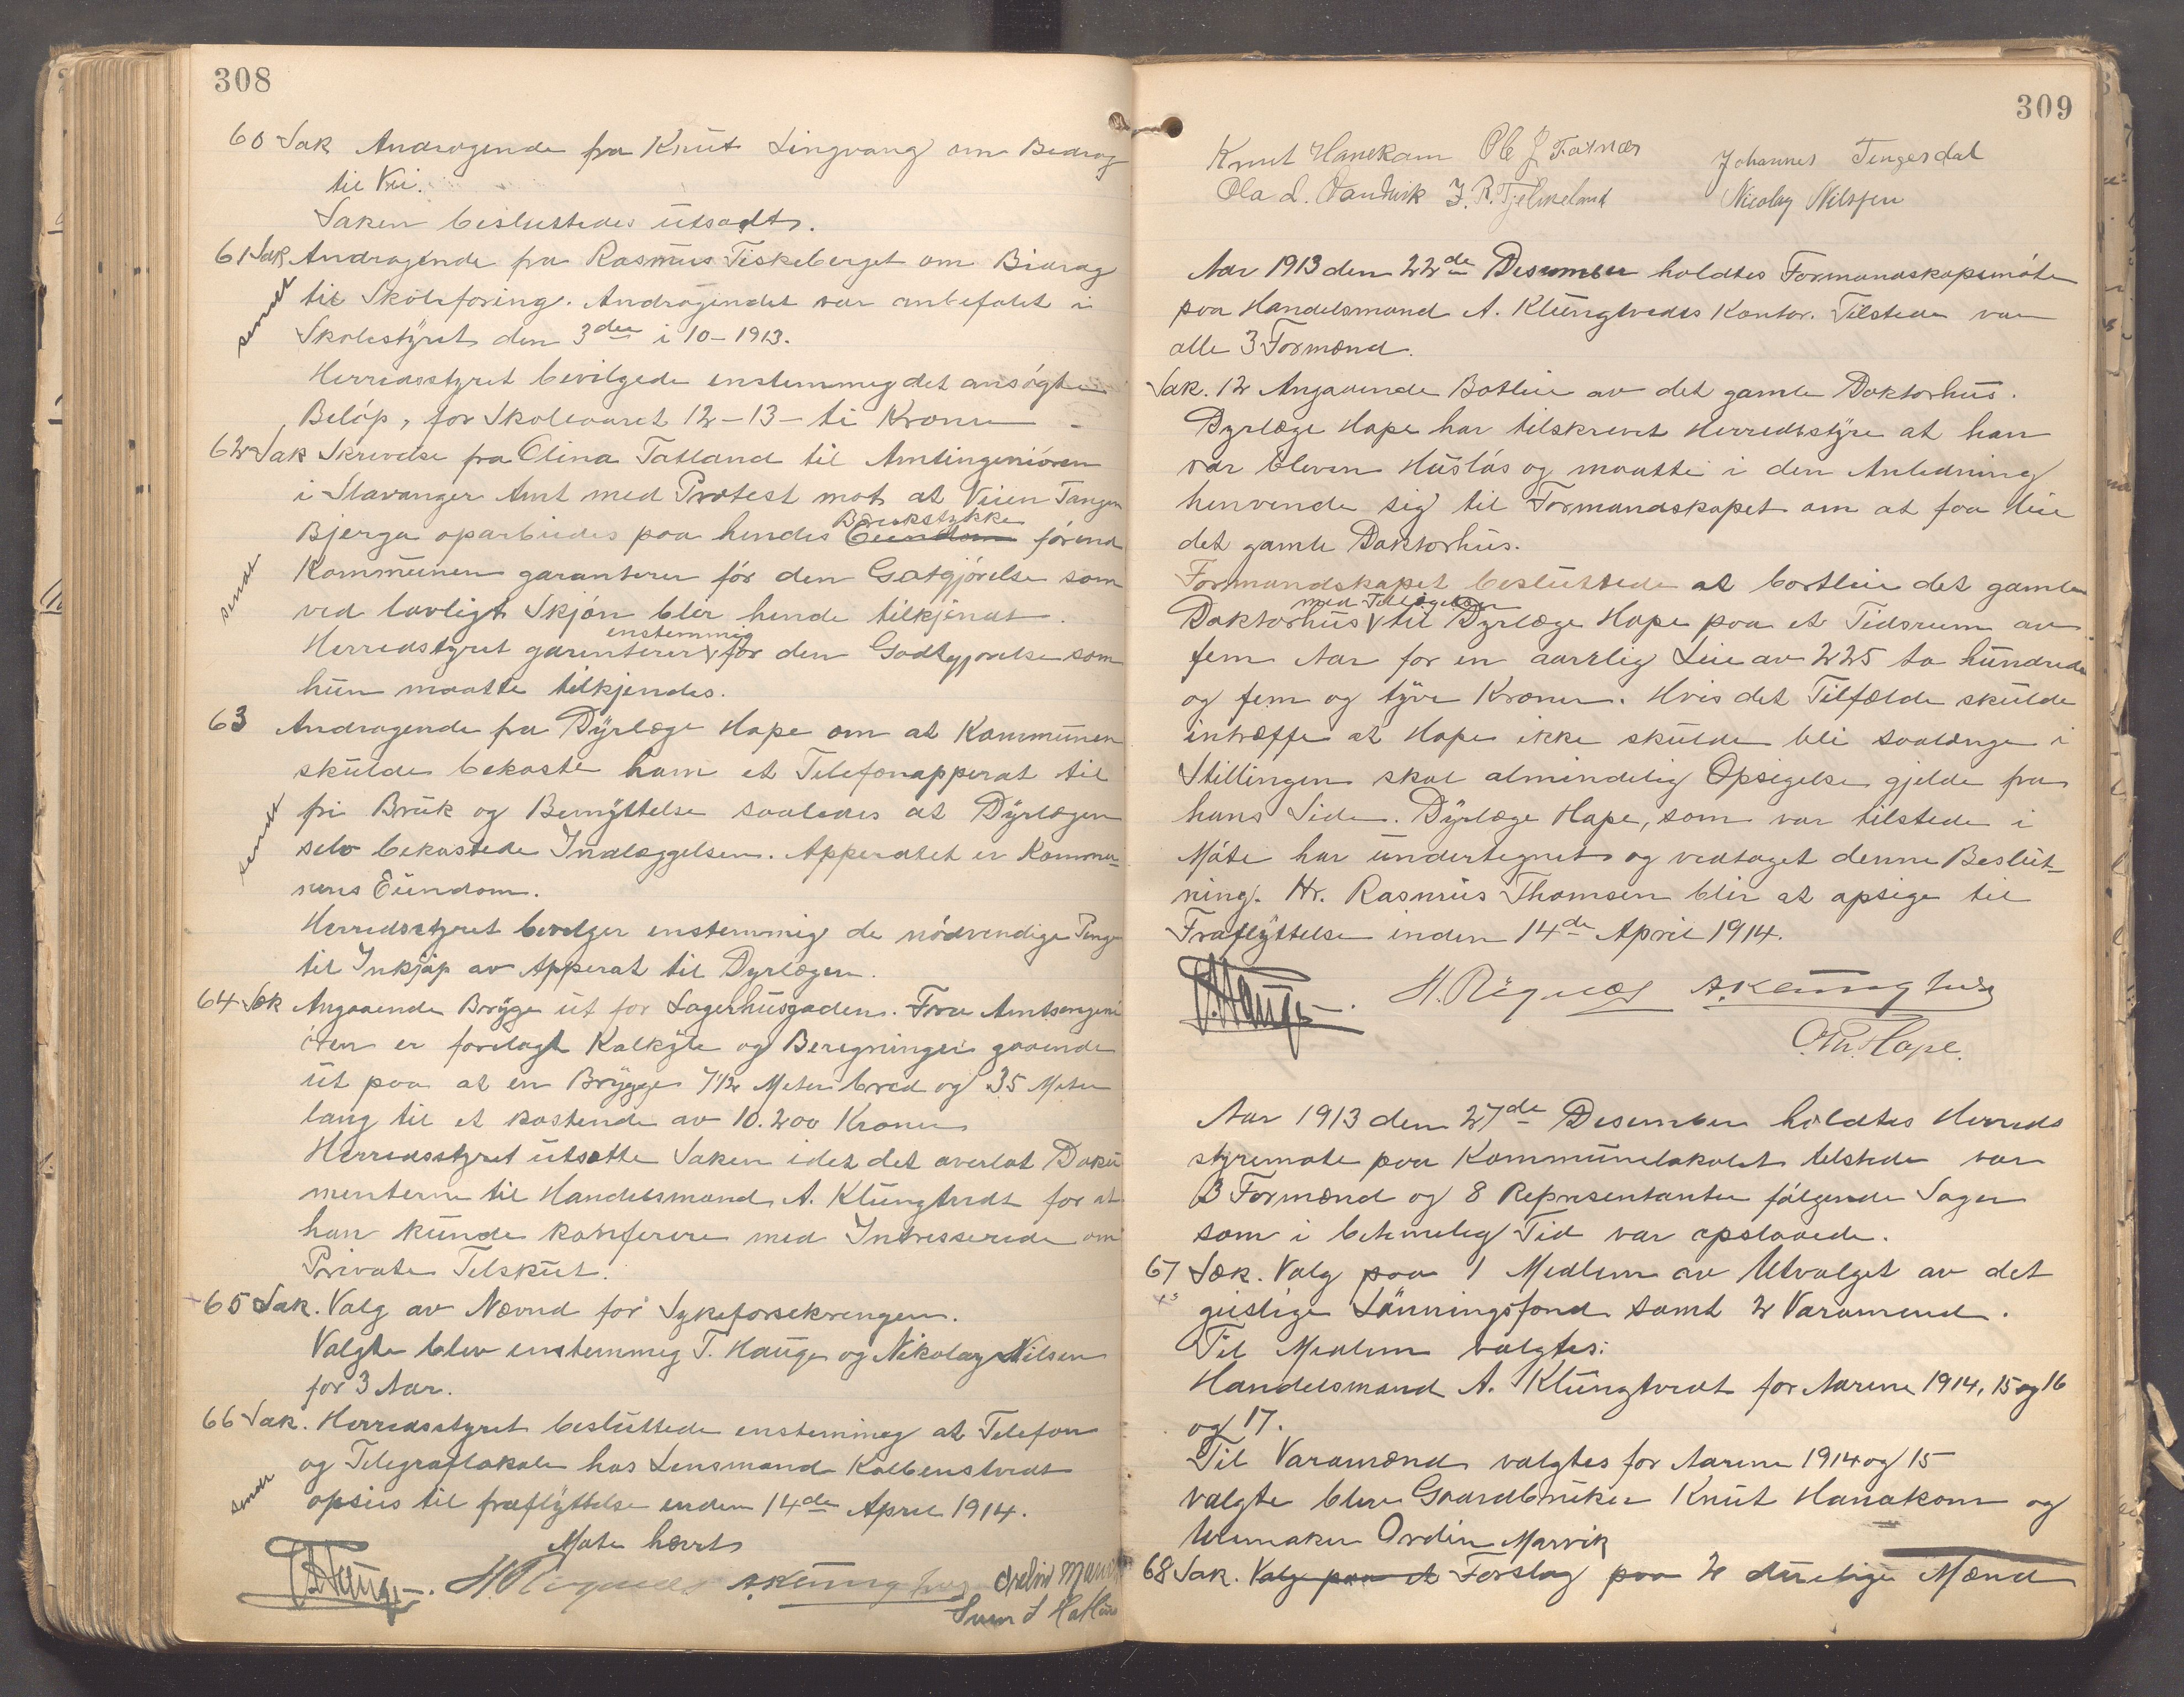 308
60 Sak Andragende fra Knut Lingvang om Bedrag
til Vei.
Saken besluttedes utsadt.
61 Sak Andragende fra Rasmus Fiskeberget om Bidrag
til Skoleforing. Andragendet var anbefalet i
sendt
Skolestyret den 3die i 10-1913.
Herredsstyret bevilgede enstemmig det ansøgte
Beløp, for Skoleaaret 12-13- ti Kroner
62 Sak Skrivelse fra Olina Tatland til Amtingeniøren
i Stavanger Amt med Protest mot at Veien Tangen
Bjerga oparbeides paa hendes Eiendom Brukstykke førend
sendt
Kommunen garanterer før den Gotgjørelse som
ved lovligt Skjøn blir hende tilkjendt.
Herredstyret garenterer enstemmig for den Godtgjørelse som
hun maatte tilkjendes.
63 Andragende fra Dyrlæge Hope om at Kommunen
skulde bekoste ham et Telefonapperat til
fri Bruk og Benyttelse saaledes at Dyrlægen
sendt
selv bekostede Indlæggelsen. Apperatet er Kommu-
nens Eiendom.
Herredsstyret bevilger enstemmig de nødvendige Penge
til Inkjøp av Apperat til Dyrlægen.
64 Sak Angaaende Brygge ut for Lagerhusgaden. Fra Amtsingeni
øren er forelagt Kalkyle og Beregninger gaaende
ut paa at en Brygge 7½ Meter bred og 35 Meter
lang til et kostende av 10.200 Kroner
Herredsstyret utsatte Saken idet det overlot Doku
menterne til Handelsmand A. Klungtvedt for at
han kunde konferere med Intresserede om
Private Telskut.
65 Sak. Valg av Nævnd for Sykeforsekringen.
Valgte blev enstemmig T. Hauge og Nikolay Nilsen
for 3 Aar.
66 Sak. Herredsstyret besluttede enstemmig at Telefon
og Telegraflokale hos Lensmand Kolbenstvedt
sendt
opsies til fraflyttelse inden 14de April 1914.
Møte hævet
T. Hauge. H. Rignæs A. Klungtvedt Ordin Marvik
309
Knut Hanekam Ole J Fatnæs Johannes Tengesdal
Ola L. Vandvik J. R. Tjelmeland Nicolay Nilssen
Aar 1913 den 22de Desember holdtes Formandskapsmøte
paa Handelsmand A. Klungtvedts Kontor. Tilstede var
alle 3 Formænd.
Sak. 12 Angaaende Botleie av det gamle Doktorhus.
Dyrlæge Hope har tilskrevet Herredsstyre at han
var bleven Husløs og maatte i den Anledning
henvende sig til Formandskapet om at faa leie
det gamle Doktorhus.
Formandskapet besluttede at bortleie det gamle
Doktorhus med Tillæggelser til Dyrlæge Hope paa et Tidsrum av
fem Aar for en aarlig Leie av 225 to hundrede
og fem og tyve Kroner. Hvis det Tilfælde skulde
intræffe at Hope ikke skulde bli saalenge i
Stillingen skal almindelig Opsigelse gjelde fra
hans Side. Dyrlæge Hope, som var tilstede i
Møte har undertegnet og vedtaget denne Beslut-
ning. Hr. Rasmus Thomsen blir at opsige til
Fraflyttelse inden 14de April 1914.
T. Hauge. H. Rignæs A. Klungtvedt
Hope.
Aar 1913 den 27de Desember holdtes Herreds
styremøte paa Kommunelokalet telstede var
3 Formænd og 8 Representanter følgende Sager
som i betimelig Tid var opslaaede.
67 Sak. Valg paa 1 Medlem av Utvalget av det
geistlige Lønningsfond samt 2 Varamend.
Til Medlem valgtes:
Handelsmand A. Klungtvedt for Aarene 1914, 15 og 16
og 17.
Til Varamænd valgtes for Aarene 1914 og 15
valgte blev Gaardbruker Knut Hanakam og
Urmaker Ordin Marvik
68 Sak. Valg paa et Forslag paa 2 duelige Mænd